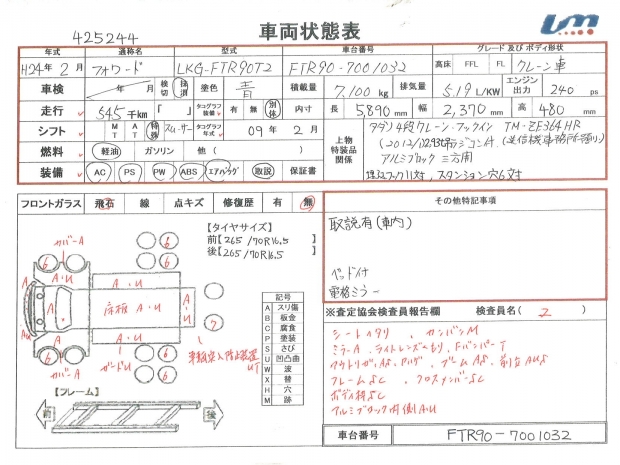 425244
車両状態表
Lm
年式 通称名 型式 車台番号 グレード及びボディ形状
H24年2月 フォワード LKG-FTR90T2 FTR90-7001032 高床 FFL FL クレーン車
車検 年 月 検切 抹消 塗色 青 積載量 7,100 kg 排気量 5.19 L/KW エンジン出力 240 ps
走行 545 千km 「 」 タコグラフ装備 有 無 別体 内寸 長 5,890 mm 幅 2,370 mm 高 480 mm
シフト MT AT 特殊 スムーサー タコグラフ年式 09年 2月 上物特装品関係 タダノ4段クレーン・フックイン TM-ZE364HR
(2012/1) 2.93t ラジコン付 (送信機事務所預り)
燃料 軽油 ガソリン 他( ) アルミブロック三方開
装備 AC PS PW ABS エアバッグ 取説 保証書 埋込フック11対, スタンション穴6対
フロントガラス 飛石 線 点キズ 修復歴 有 無
その他特記事項
取説有(車内)
ベッド付
電格ミラー
【タイヤサイズ】
前【265/70R16.5】
後【265/70R16.5】
カバーA
6 6 6
A A・U A・U
床板 A・U
A・U
7
車輌突入防止装置
UT
カバーA ガードU
6 6 6
記号
A スリ傷
B 板金
C 腐食
P 塗装
S さび
U 凹凸曲
W 波
X 替
H 穴
M 跡
【フレーム】
前 後
※査定協会検査員報告欄 検査員名( 2 )
シートヘタリ , カンバンM
ミラーA , ライトレンズくもり, FバンパーT
フレームSC , クロスメンバーSC
アルミブロック内側AU
車台番号 FTR90-7001032